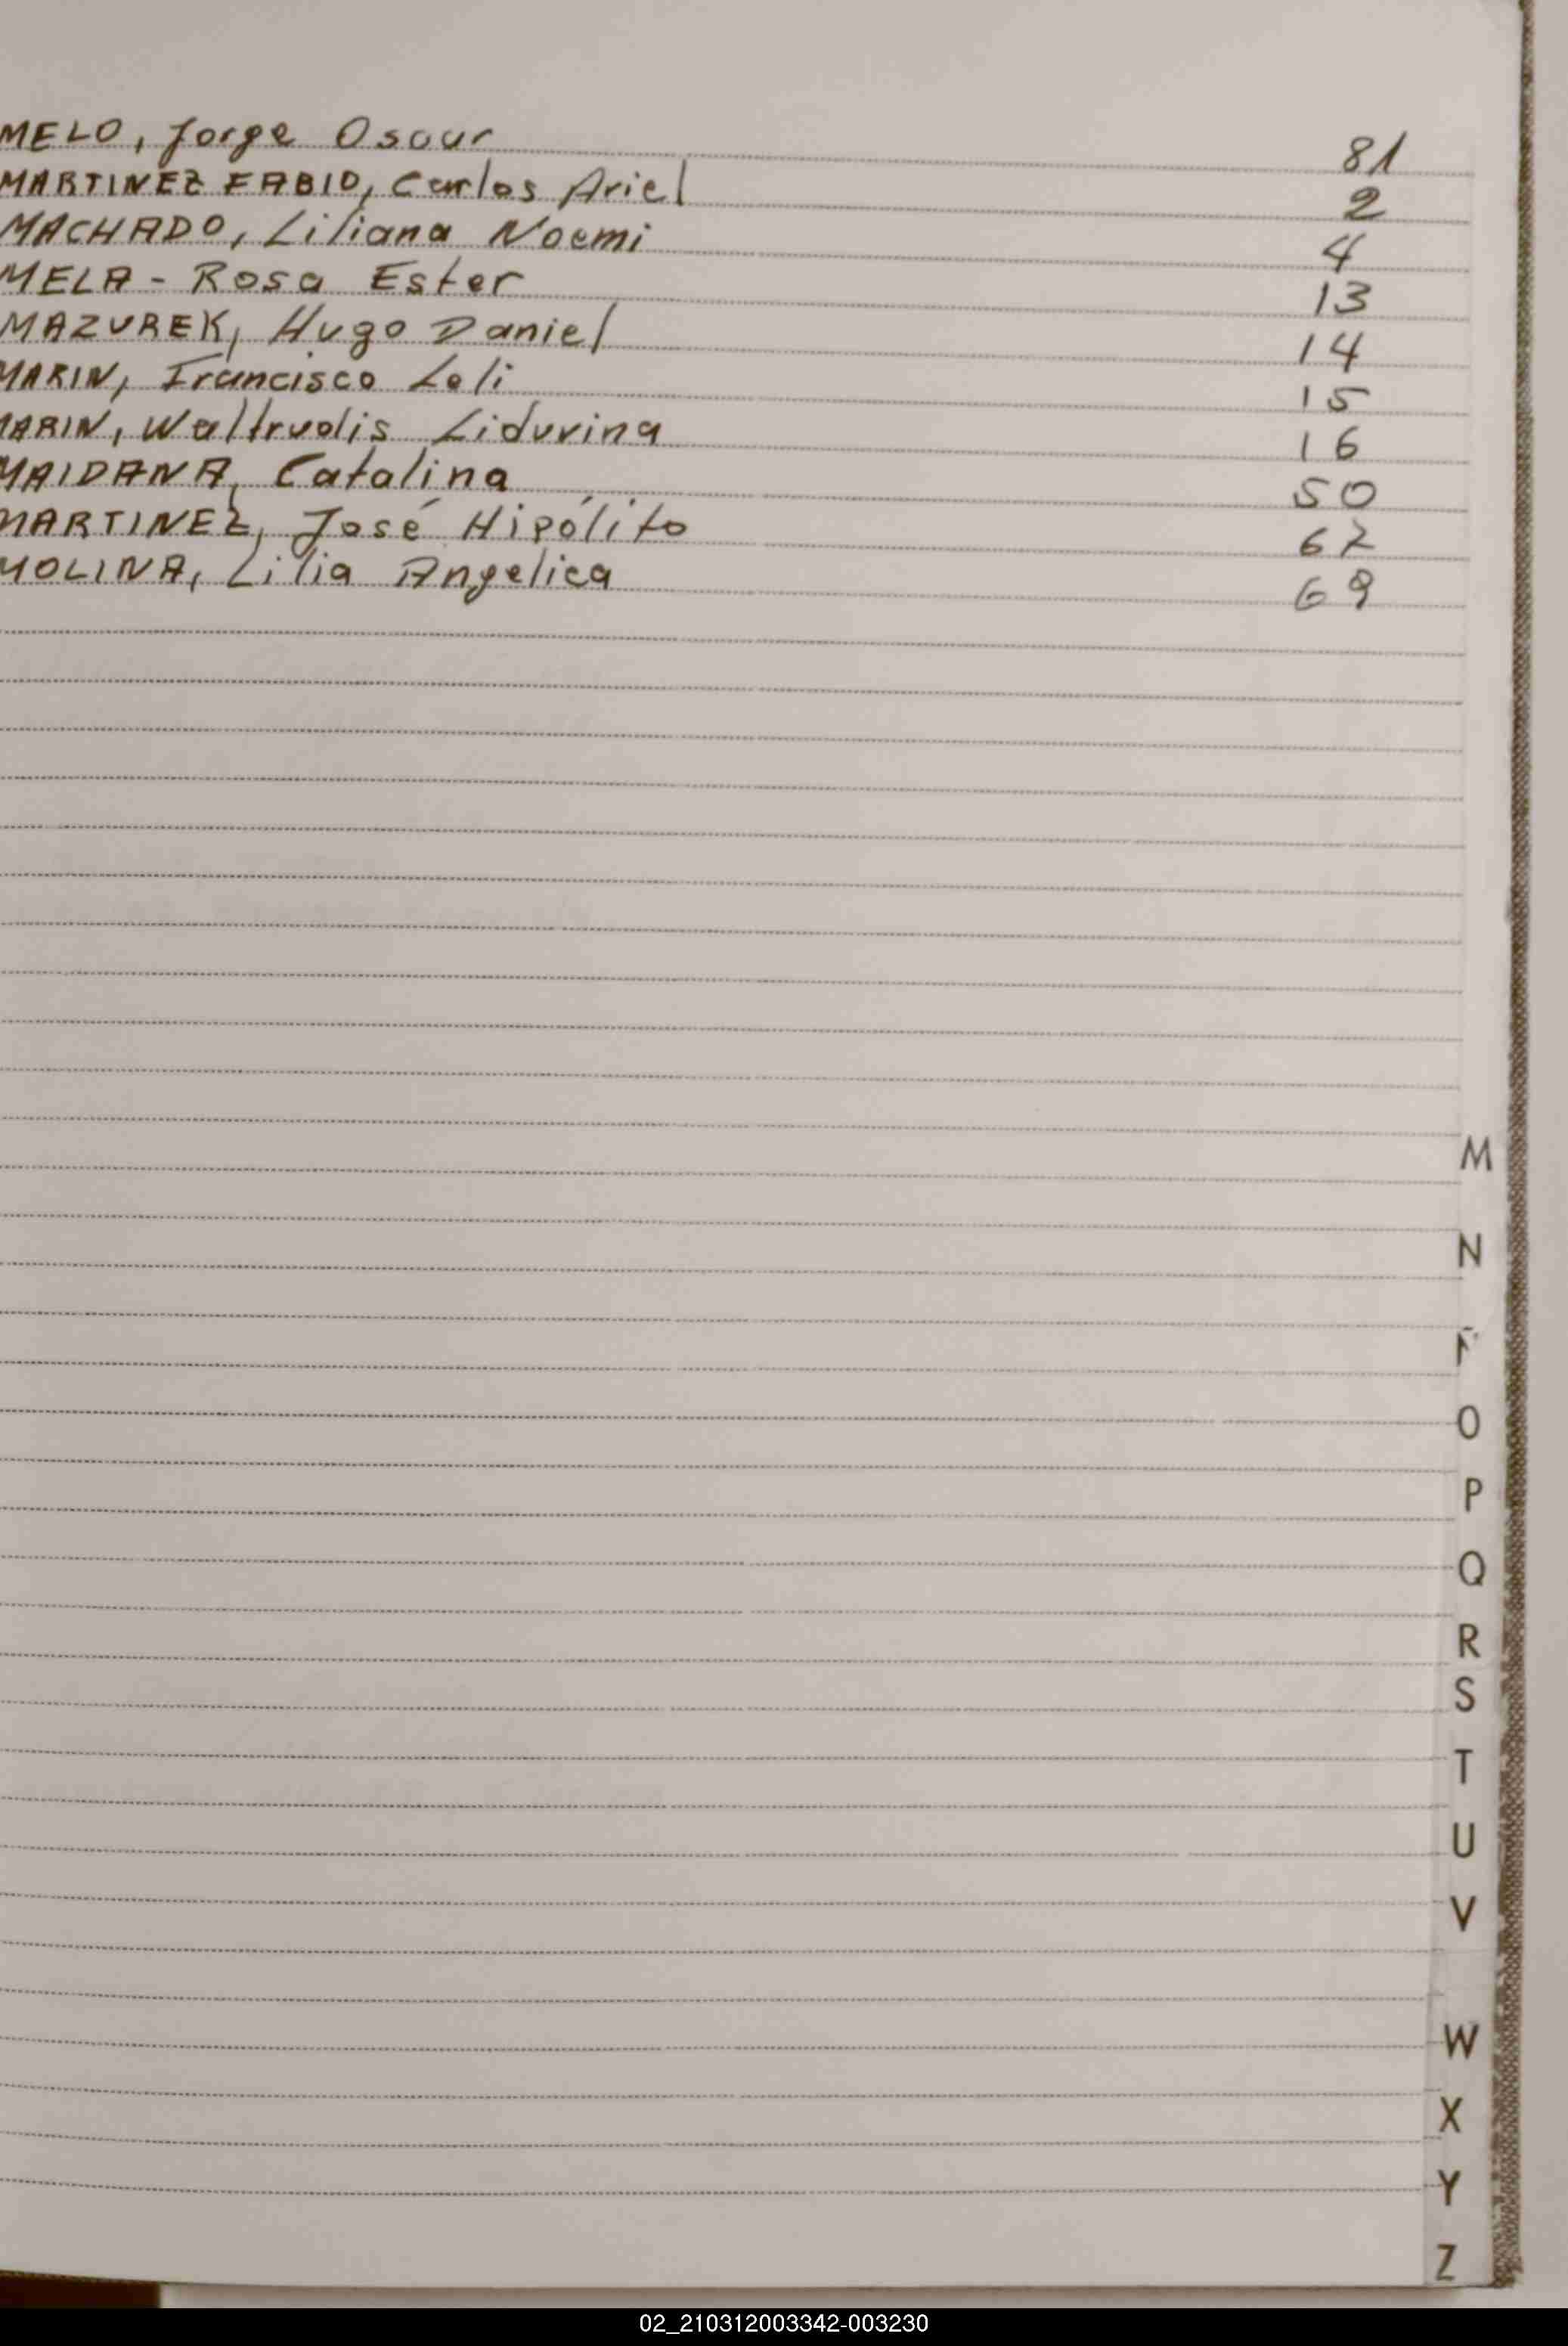 MELO, Jorge Oscar 81
MARTINEZ FABIO, Carlos Ariel 2
MACHADO, Liliana Noemi 4
MELA - Rosa Ester 13
MAZUREK, Hugo Daniel 14
MARIN, Francisco Loli 15
MARIN, Waltrudis Liduvina 16
MAIDANA, Catalina 50
MARTINEZ, José Hipólito 67
MOLINA, Lilia Angelica 69
M
N
Ñ
O
P
Q
R
S
T
U
V
W
X
Y
Z
02_210312003342-003230